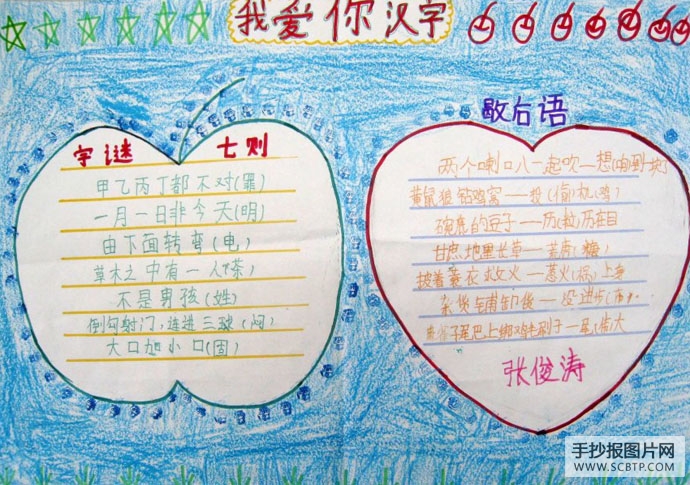 我爱你汉字
字谜 七则
甲乙丙丁都不对(罪)
一月一日非今天(明)
由下面转弯(电)
草木之中有一人(茶)
不是男孩(姓)
倒勾射门,连进三球(闷)
大口加小口(固)
歇后语
两个喇口八一起吹—想(响)到一块了
黄鼠狼钻鸡窝——投(偷)机(鸡)
豌豆的豆子——历(粒)历在目
甘庶地里长草——荒唐(糖)
披着蓑衣救火——惹火(祸)上身
杂货
后——
尾巴上绑鸡毛刷子—尾(伟)大
张俊涛
手抄报图片网
WWW.SCBTP.COM